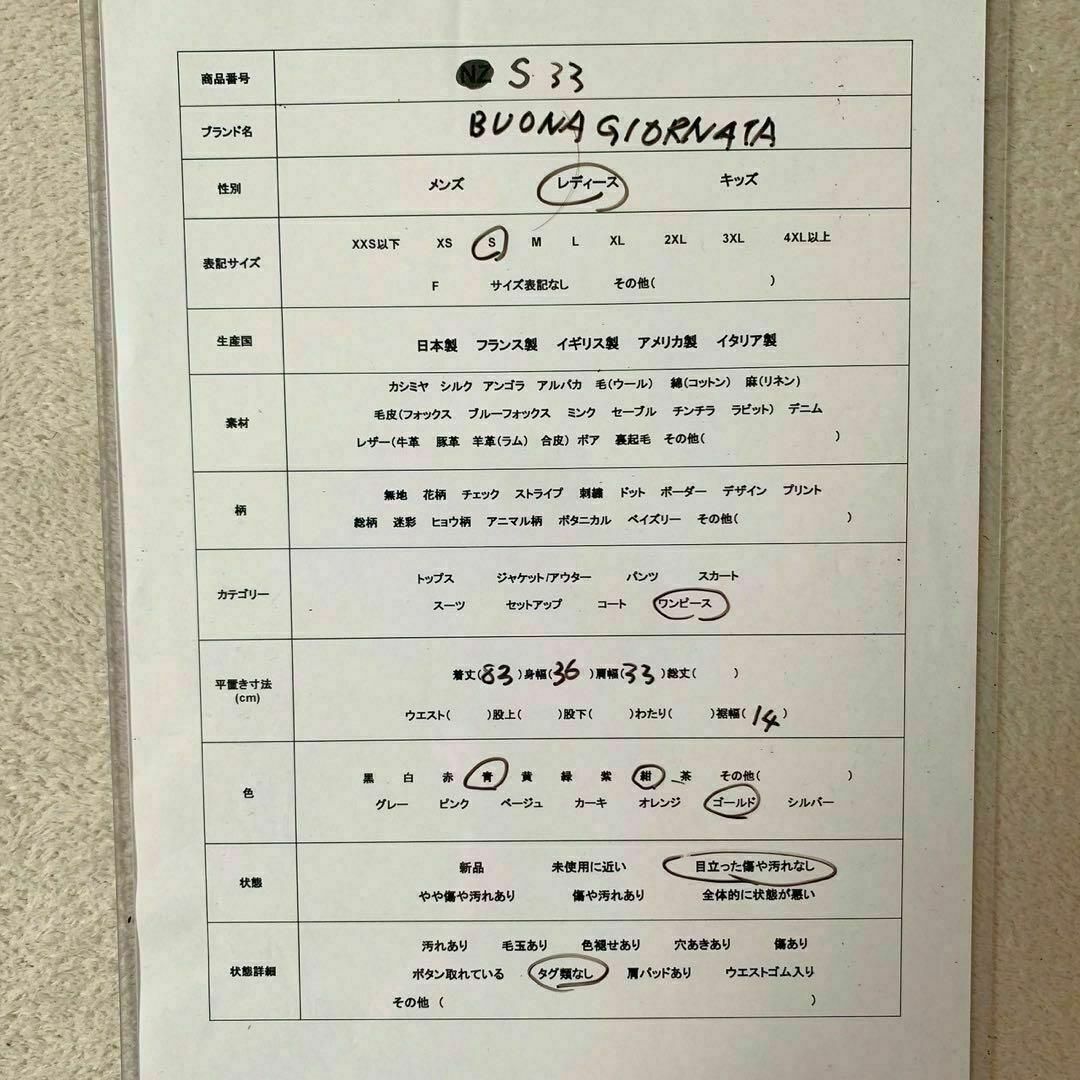 商品番号 NZ S 33
ブランド名 BUONA GIORNATA
性別 メンズ レディース キッズ
表記サイズ
XXS以下 XS S M L XL 2XL 3XL 4XL以上
F サイズ表記なし その他( )
生産国 日本製 フランス製 イギリス製 アメリカ製 イタリア製
素材
カシミヤ シルク アンゴラ アルパカ 毛(ウール) 綿(コットン) 麻(リネン)
毛皮(フォックス ブルーフォックス ミンク セーブル チンチラ ラビット) デニム
レザー(牛革 豚革 羊革(ラム) 合皮) ボア 裏起毛 その他( )
柄
無地 花柄 チェック ストライプ 刺繍 ドット ボーダー デザイン プリント
総柄 迷彩 ヒョウ柄 アニマル柄 ボタニカル ペイズリー その他( )
カテゴリー
トップス ジャケット/アウター パンツ スカート
スーツ セットアップ コート ワンピース
平置き寸法
(cm)
着丈(83)身幅(36)肩幅(33)総丈( )
ウエスト( )股上( )股下( )わたり( )裾幅(14)
色
黒 白 赤 青 黄 緑 紫 紺 茶 その他( )
グレー ピンク ベージュ カーキ オレンジ ゴールド シルバー
状態
新品 未使用に近い 目立った傷や汚れなし
やや傷や汚れあり 傷や汚れあり 全体的に状態が悪い
状態詳細
汚れあり 毛玉あり 色褪せあり 穴あきあり 傷あり
ボタン取れている タグ類なし 肩パッドあり ウエストゴム入り
その他 ( )